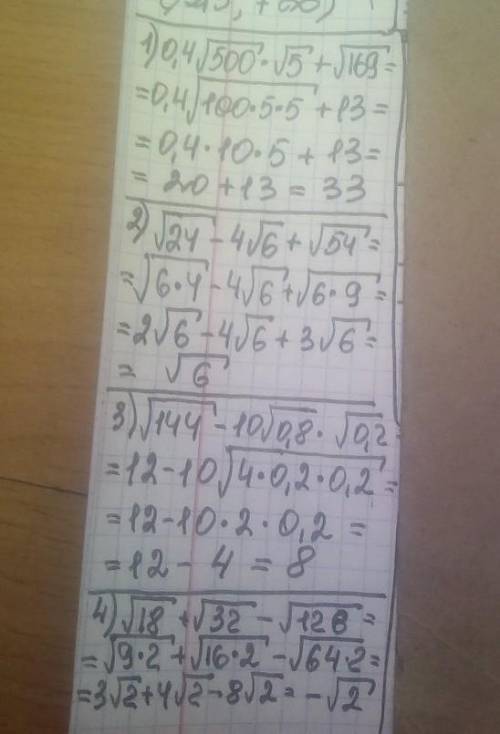 1) 0,4√500·√5+√169=
=0,4√100·5·5+13=
=0,4·10·5+13=
=20+13=33
2) √24-4√6+√54=
=√6·4-4√6+√6·9=
=2√6-4√6+3√6=
=√6
3) √144-10√0,8·√0,2
=12-10√4·0,2·0,2=
=12-10·2·0,2=
=12-4=8
4) √18+√32-√128=
=√9·2+√16·2-√64·2=
=3√2+4√2-8√2=-√2